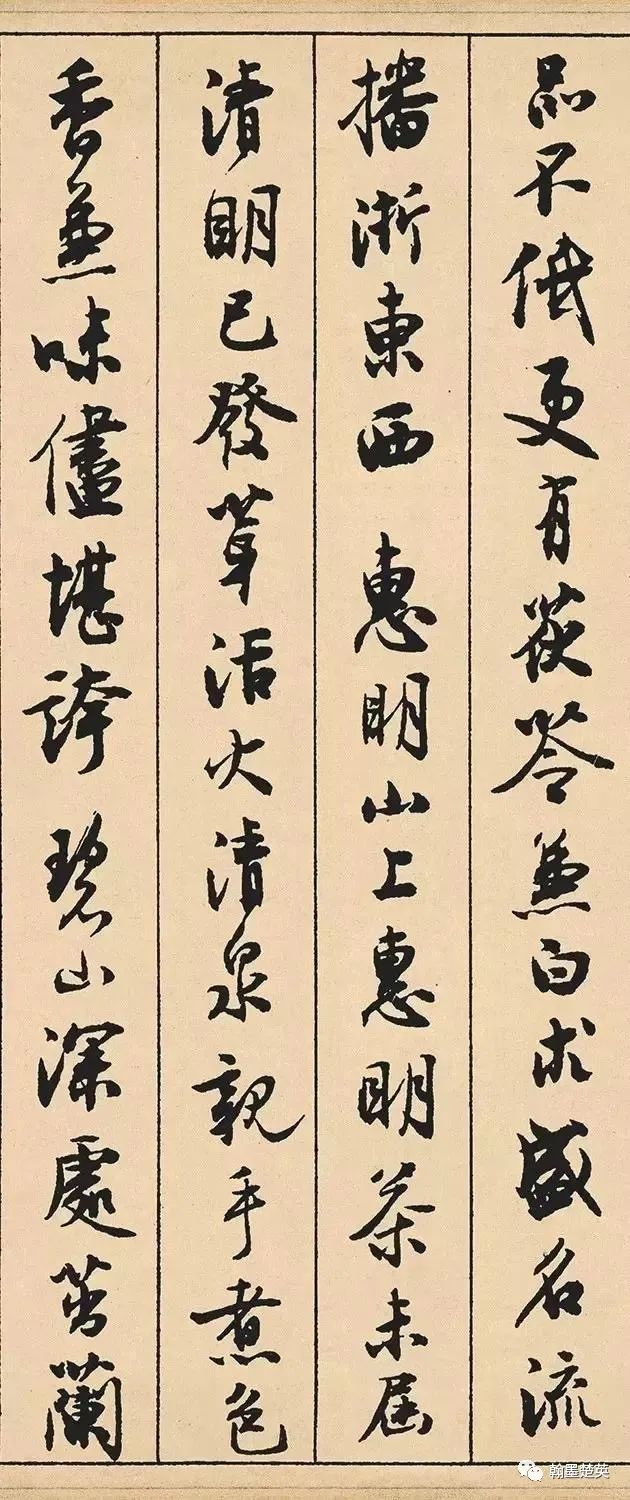 品不低更有茯苓兼白朮盛名流
播浙東西 惠明山上惠明茶未屆
清明已發芽活火清泉親手煮色
香兼味儘堪誇 碧山深處蘭
翰墨楚英